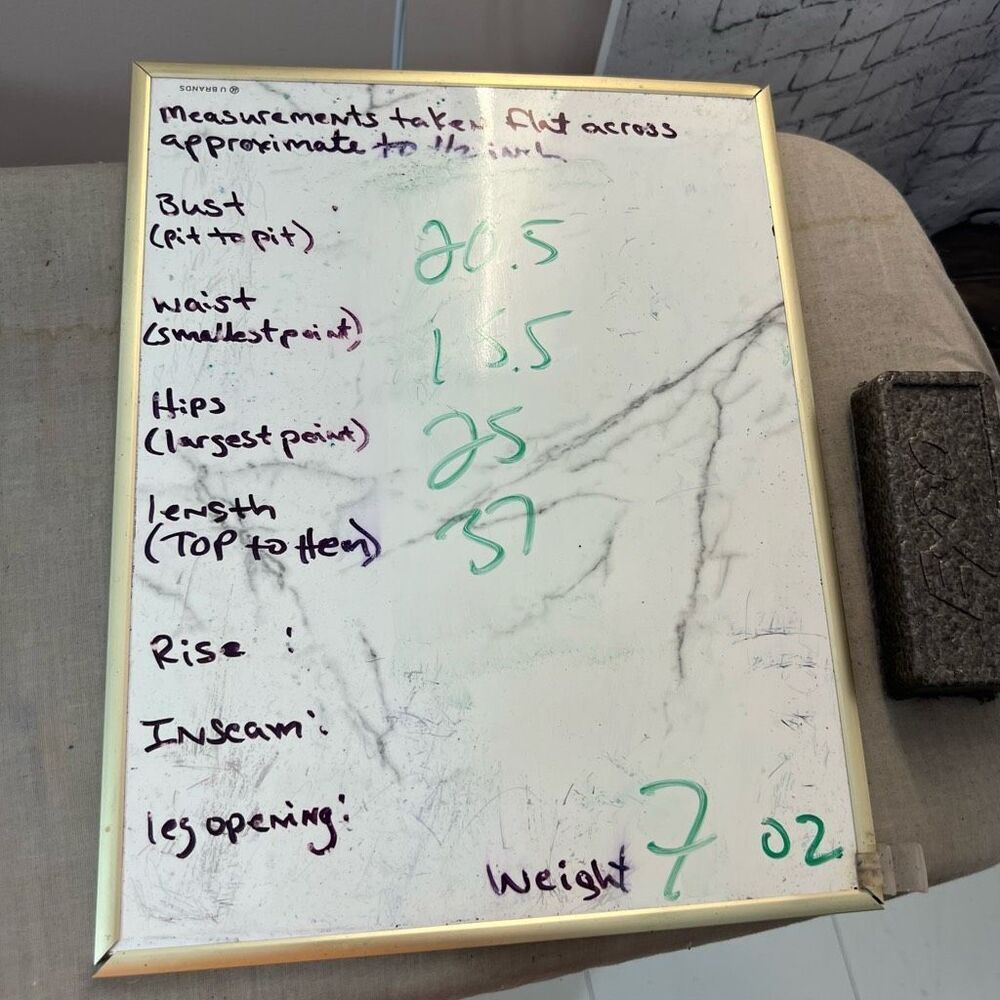 U BRANDS
Measurements taken flat across
approximate to 1/2 inch
Bust
(pit to pit) 20.5
Waist
(smallest point) 15.5
Hips
(largest point) 25
length
(TOP to Hem) 37
Rise :
Inseam:
leg opening:
Weight 7 oz